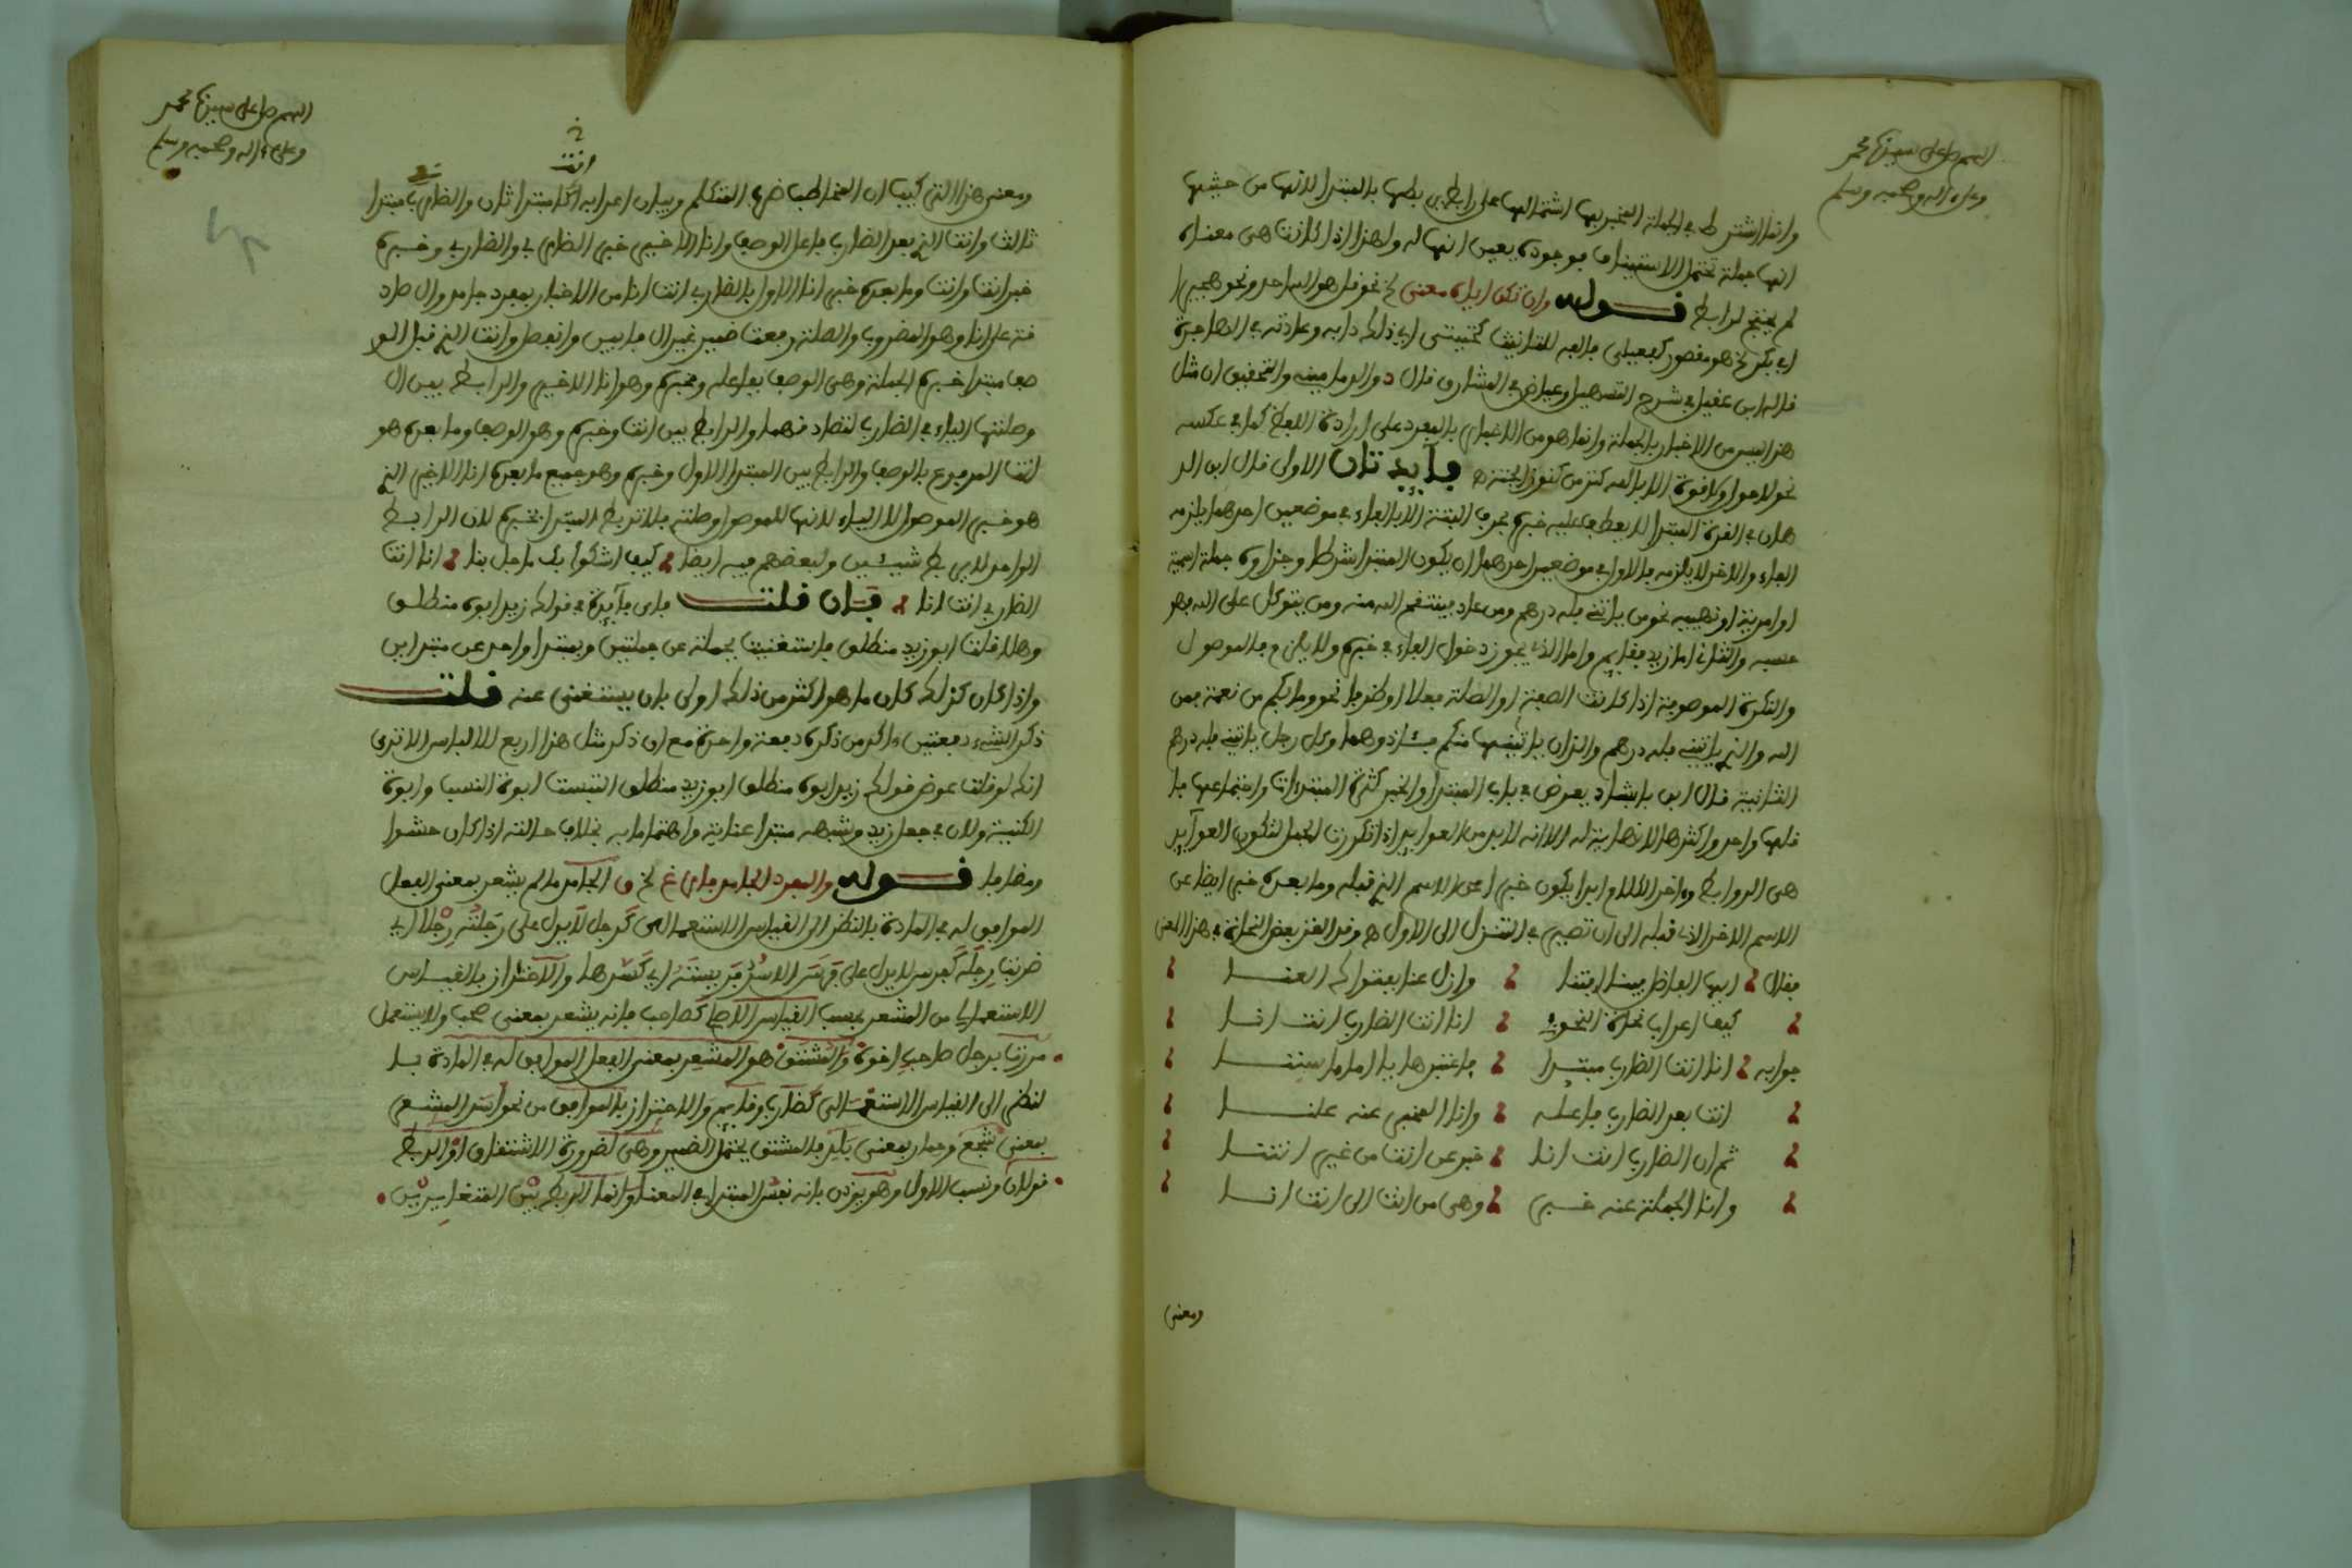 اللهم صل على سيدنا محمد
وعلى ءاله وصحبه وسلم
وانما اشترط في الجملة المخبر بها اشتمالها على رابط يربطها بالمبتدا لانها من حيث
انها جملة تحتمل الاستيناف موجوده يعين انها له ولهذا اذا كانت هي معناه
لم يحتج لرابط قوله وان تكن اياه معنى الخ نحو قل هو الله احد ونحو هجيرا
ابي بكر الخ هو مقصور كفعيلى بالفه للتانيث كحثيثى اي ذلك دابه وعادته في الهاجرة
قاله ابن عقيل في شرح التسهيل وعياض في المشارق قال والتحقيق ان مثل
هذا ليس من الاخبار بالجملة وانما هو من الاخبار بالمفرد على ارادة اللفظ كما في عكسه
نحو لا حول ولا قوة الا بالله كنز من كنوز الجنة فايدتان الاولى قال ابن الد
هان في الغرة المبتدا لا يعطف عليه خبره بحرف البتة الا بالفاء في موضعين احدهما يلزمه
الفاء والاخر لا يلزمه فالاول في موضعين احدهما ان يكون المبتدا شرطا وجزاوه جملة اسمية
او امرية او نهيية نحو من ياتني فله درهم ومن عاد فينتقم الله منه ومن يتوكل على الله فهو
حسبه والثاني اما زيد فقايم واما الذي يجوز دخول الفاء في خبره ولا يلزم فالموصول
والنكرة الموصوفة اذا كانت الصفة او الصلة فعلا او ظرفا نحو وما بكم من نعمة فمن
الله والذي ياتيني فله درهم والذان ياتيانها منكم فئاذوهما وكل رجل ياتيني فله درهم
الثانية قال ابن بابشاد يعرض في باب المبتدا والخبر كثرة المبتدءات واجتماعها فا
قلها واحد واكثرها لا نهاية له الا انه لا بد من العوايد اذا تكررت الجمل لتكون العوآيد
هي الروابط وءاخر الكلام ابدا يكون خبرا عن الاسم الذي قبله وما بعده خبر ايضا عن
الاسم الاخر الذي قبله الى ان تصير في التنزل الى الاول وقد الغز بعض النحاة في هذا المعنى
فقال ايها الفاضل فينا افتنا وازل عنا بفتواك العنا
كيف اعراب نحاة النحو في انا انت الضارب انت انا
جوابه انا انت الضارب مبتدا فاعتبرها يا اماما سننا
انت بعد الضارب فاعله وانا المخبر عنه علنا
ثم ان الضارب انت انا خبر عن انت من غير انثنا
وانا الجملة عنه خبر وهي من انت الى انت انا
ومعنى
اللهم صل على سيدنا محمد
وعلى ءاله وصحبه وسلم
انت
ومعنى هذا التركيب ان المخاطب ضرب المتكلم وبيان اعرابه انا مبتدا ثان والضارب مبتدا
ثالث وانت الذي بعد الضارب فاعل الوصف وانا الاخير خبر الضارب والضارب وخبره
خبر انت وانت وما بعده خبر انا الاول بالضارب انت انا من الاخبار بمفرد جامد وال صاد
قة على انا وهو المضروب والصلة رفعت ضمير غير ال فابرز وانفصل وانت الذي قبل الو
صف مبتدا خبره الجملة وهي الوصف بفاعله وخبره وهو انا الاخير والرابط بين ال
وصلتها الياء في الضاربي لتصادقهما والرابط بين انت وخبره وهو الوصف وما بعده هو
انت المرفوع بالوصف والرابط بين المبتدا الاول وخبره وهو جميع ما بعده انا الاخير الذي
هو خبر الموصول لا الياء لانها للموصول وصلته فلا تربط المبتدا بخبره لان الرابط
الواحد لا يربط شيئين ولبعضهم فيه ايضا كيف اشكو بك ما حل بنا انا انت
الضاربي انت انا فان قلت فاى فايدة في قولك زيد ابوه منطلق
وهلا قلت ابو زيد منطلق فاستغنيت بجملة عن جملتين وبمبتدا واحد عن مبتداين
واذا كان كذلك كان ما هو اكثر من ذلك اولى بان يستغنى عنه قلت
ذكر الشيء دفعتين ءاكد من ذكره دفعة واحدة مع ان ذكر مثل هذا ارفع للالباس الا ترى
انك لو قلت عوض قولك زيد ابوه منطلق ابو زيد منطلق التبست ابوة النسب وابوة
الكنية ولان في جعل زيد وشبهه مبتدا عناية واهتماما به بخلاف حالته اذا كان حشوا
ومضافا قوله والمفرد الجامد فارغ الخ الجامد ما لم يشعر بمعنى الفعل
الموافق له في المادة بالنظر الى القياس الاستعمالى كرجل لا يدل على رجلته رجلا اي
ضربت رجله كفرس لا يدل على فرس الاسد فريسته اي كسرها والاحتراز بالقياس
الاستعمالى من المشعر بحسب القياس الاصلي كصاحب فانه يشعر بمعنى صحب ولا يستعمل
مررت برجل صاحب اخوه والمشتق هو المشعر بمعنى الفعل الموافق له في المادة با
لنظر الى القياس الاستعمالى كضارب وقايم والاحتراز بالموافق من نحو اسد المشعر
بمعنى شجع وحمار بمعنى بلد فالمشتق يحتمل الضمير وهل لضرورة الاشتقاق او الربط
قولان ونسب الاول وهو يوذن بانه نفس المبتدا في المعنى وانما الربط بين المتغايرين